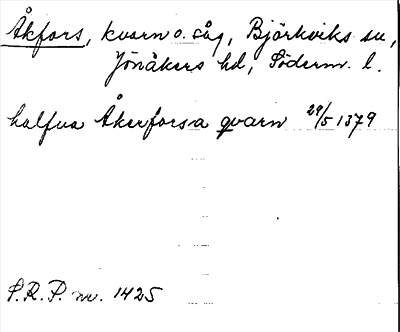 Åkfors, kvarn o. såg, Björkviks sn,
Jönåkers hd, Söderm. l.
halfua Åkerforsa qvarn 29/5 1379
S.R.P. nr. 1425